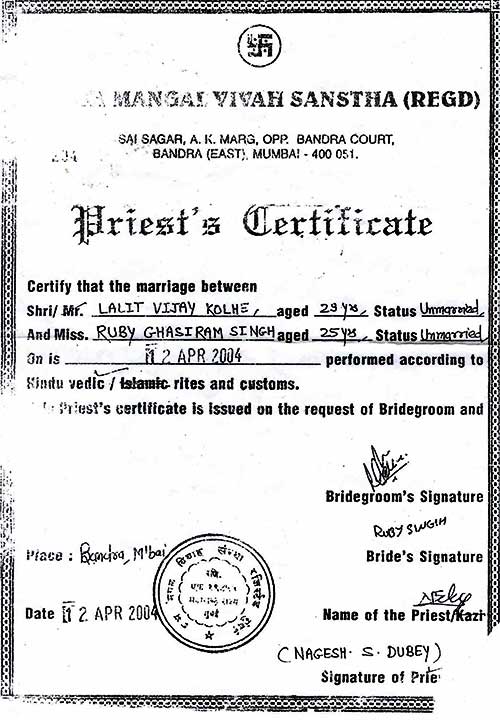 MANGAL VIVAH SANSTHA (REGD)
SAI SAGAR, A. K. MARG, OPP. BANDRA COURT,
BANDRA (EAST), MUMBAI - 400 051.
Priest's Certificate
Certify that the marriage between
Shri/ Mr. LALIT VIJAY KOLHE, aged 29 yrs, Status Unmarried,
And Miss. RUBY GHASIRAM SINGH aged 25 yrs, Status Unmarried
On is 12 APR 2004 performed according to
Hindu vedic / Islamic rites and customs.
Priest's certificate is issued on the request of Bridegroom and
Bridegroom's Signature
RUBY SINGH
Place : Bandra, M'bai
Bride's Signature
Date 12 APR 2004
Name of the Priest/Kazi
(NAGESH. S. DUBEY)
Signature of Prie